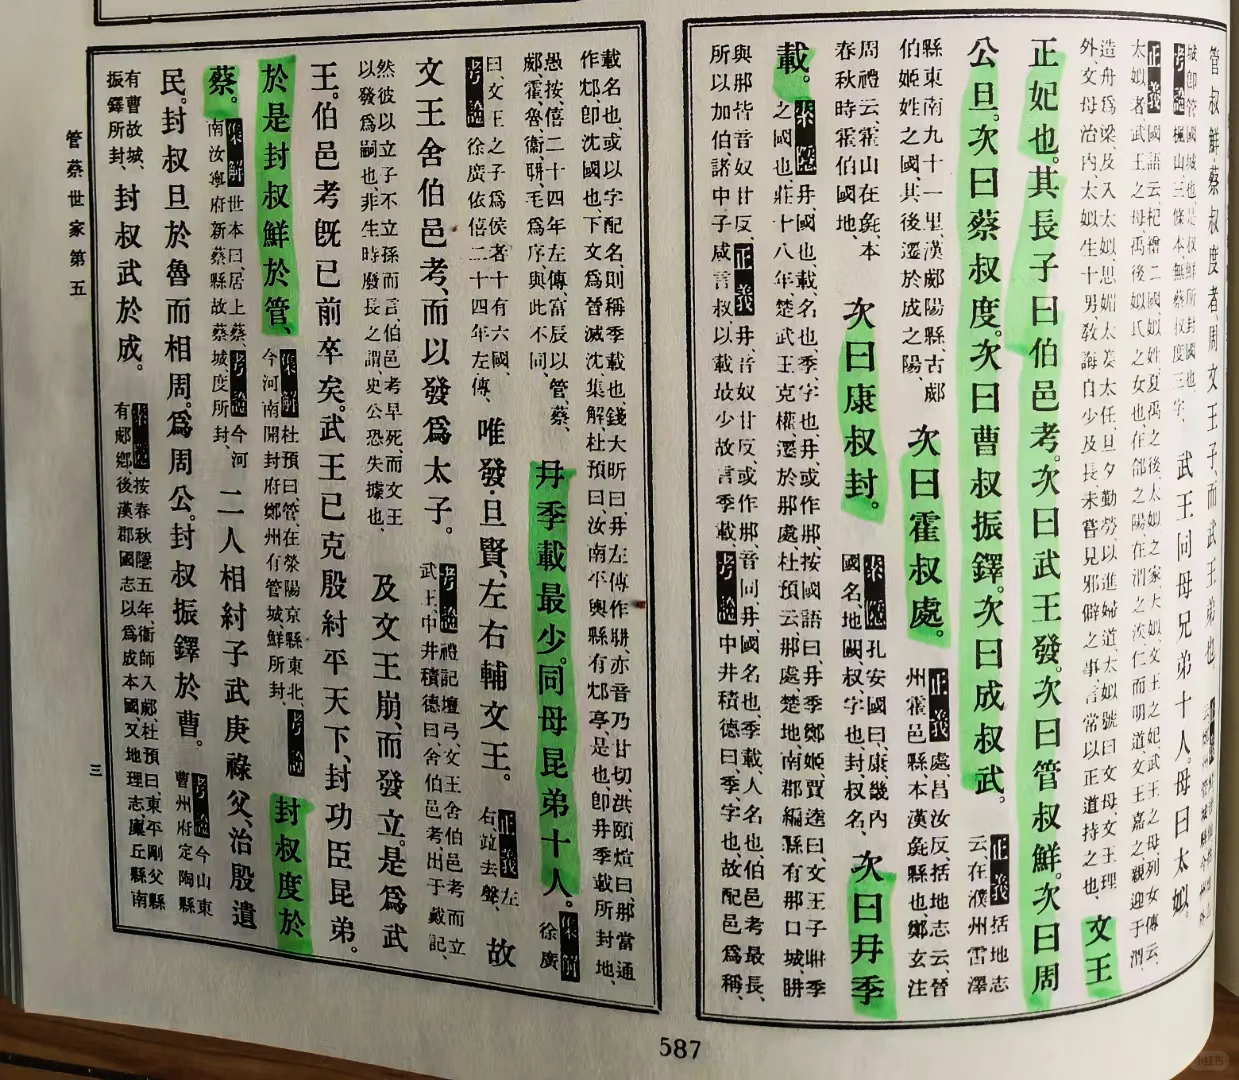 管叔鮮蔡叔度者、周文王子、而武王弟也、
城卽管國城也、是叔鮮所封國也
考證 楓山三條本、無蔡叔度三字、
武王同母兄弟十人。母曰太姒。
正義 國語云、杞繒二國、姒姓、夏禹之後、太姒之家、太姒、文王之妃、武王之母、列女傳云、
太姒者、武王之母、禹後姒氏之女也、在郃之陽、在渭之涘、仁而明道、文王嘉之、親迎于渭、
造舟爲梁、及入、太姒思媚太姜太任、旦夕勤勞、以進婦道、太姒號曰文母、文王理
外、文母治內、太姒生十男、敎誨自少及長、未嘗見邪僻之事、言常以正道持之也、
文王
正妃也。其長子曰伯邑考。次曰武王發。次曰管叔鮮。次曰周
公旦。次曰蔡叔度。次曰曹叔振鐸。次曰成叔武。
正義 括地志
云、在濮州雷澤
縣東南九十一里、漢郕陽縣、古郕
伯姬姓之國、其後遷於成之陽、
次曰霍叔處。
正義 處、昌汝反、括地志云、晉
州霍邑縣、本漢彘縣也、鄭玄注
周禮云、霍山在彘、本
春秋時霍伯國地、
次曰康叔封。
索隱 孔安國曰、康、畿內
國名、地闕、叔、字也、封、叔名、
次曰冄季
載。
索隱 冄、國也、載、名也、季、字也、冄、或作𨙻、按國語曰、冄季鄭姬、賈逵曰、文王子聃季
之國也、莊十八年、楚武王克權、遷於那處、杜預云、那處、楚地、南郡編縣有那口城、聃
與那皆音奴甘反、正義 冄、音奴甘反、或作𨙻、音同、冄、國名也、季載、人名也、伯邑考最長、
所以加伯、諸中子咸言叔、以載最少、故言季載、考證 中井積德曰、季、字也、故配邑爲稱、
載名也、或以字配名、則稱季載也、錢大昕曰、冄、左傳作聃、亦音乃甘切、洪頤煊曰、那當通
作𨙻、卽沈國也、下文爲晉滅沈、集解杜預曰、汝南平輿縣有𨙻亭、是也、卽冄季載所封地、
愚按、僖二十四年左傳、富辰以管、蔡、
郕、霍、魯、衞、聃、毛爲序、與此不同、
冄季載最少。同母昆弟十人。
集解 徐廣
曰、文王之子爲侯者十有六國、
考證 徐廣依僖二十四年左傳、
唯發・旦賢、左右輔文王。
正義 左
右竝去聲、
故
文王舍伯邑考、而以發爲太子。
考證 禮記壇弓、文王舍伯邑考而立
武王、中井積德曰、舍伯邑考、出于戴記、
然彼以立子不立孫而言、伯邑考早死、而文王
以發爲嗣也、非生時廢長之謂、史公恐失據也、
及文王崩、而發立。是爲武
王。伯邑考旣已前卒矣。武王已克殷紂平天下、封功臣昆弟。
於是封叔鮮於管、
集解 杜預曰、管、在滎陽京縣東北、考證
今河南開封府鄭州有管城、鮮所封、
封叔度於
蔡。
集解 世本曰、居上蔡、考證 今河
南汝寧府新蔡縣故蔡城、度所封、
二人相紂子武庚祿父、治殷遺
民。封叔旦於魯而相周。爲周公。封叔振鐸於曹。
考證 今山東
曹州府定陶縣
有曹故城、
振鐸所封、
封叔武於成。
索隱 按春秋隱五年、衞師入郕、杜預曰、東平剛父縣
有郕鄉、後漢郡國志以爲成本國、又地理志、廩丘縣南
管蔡世家第五
三
587
小红书